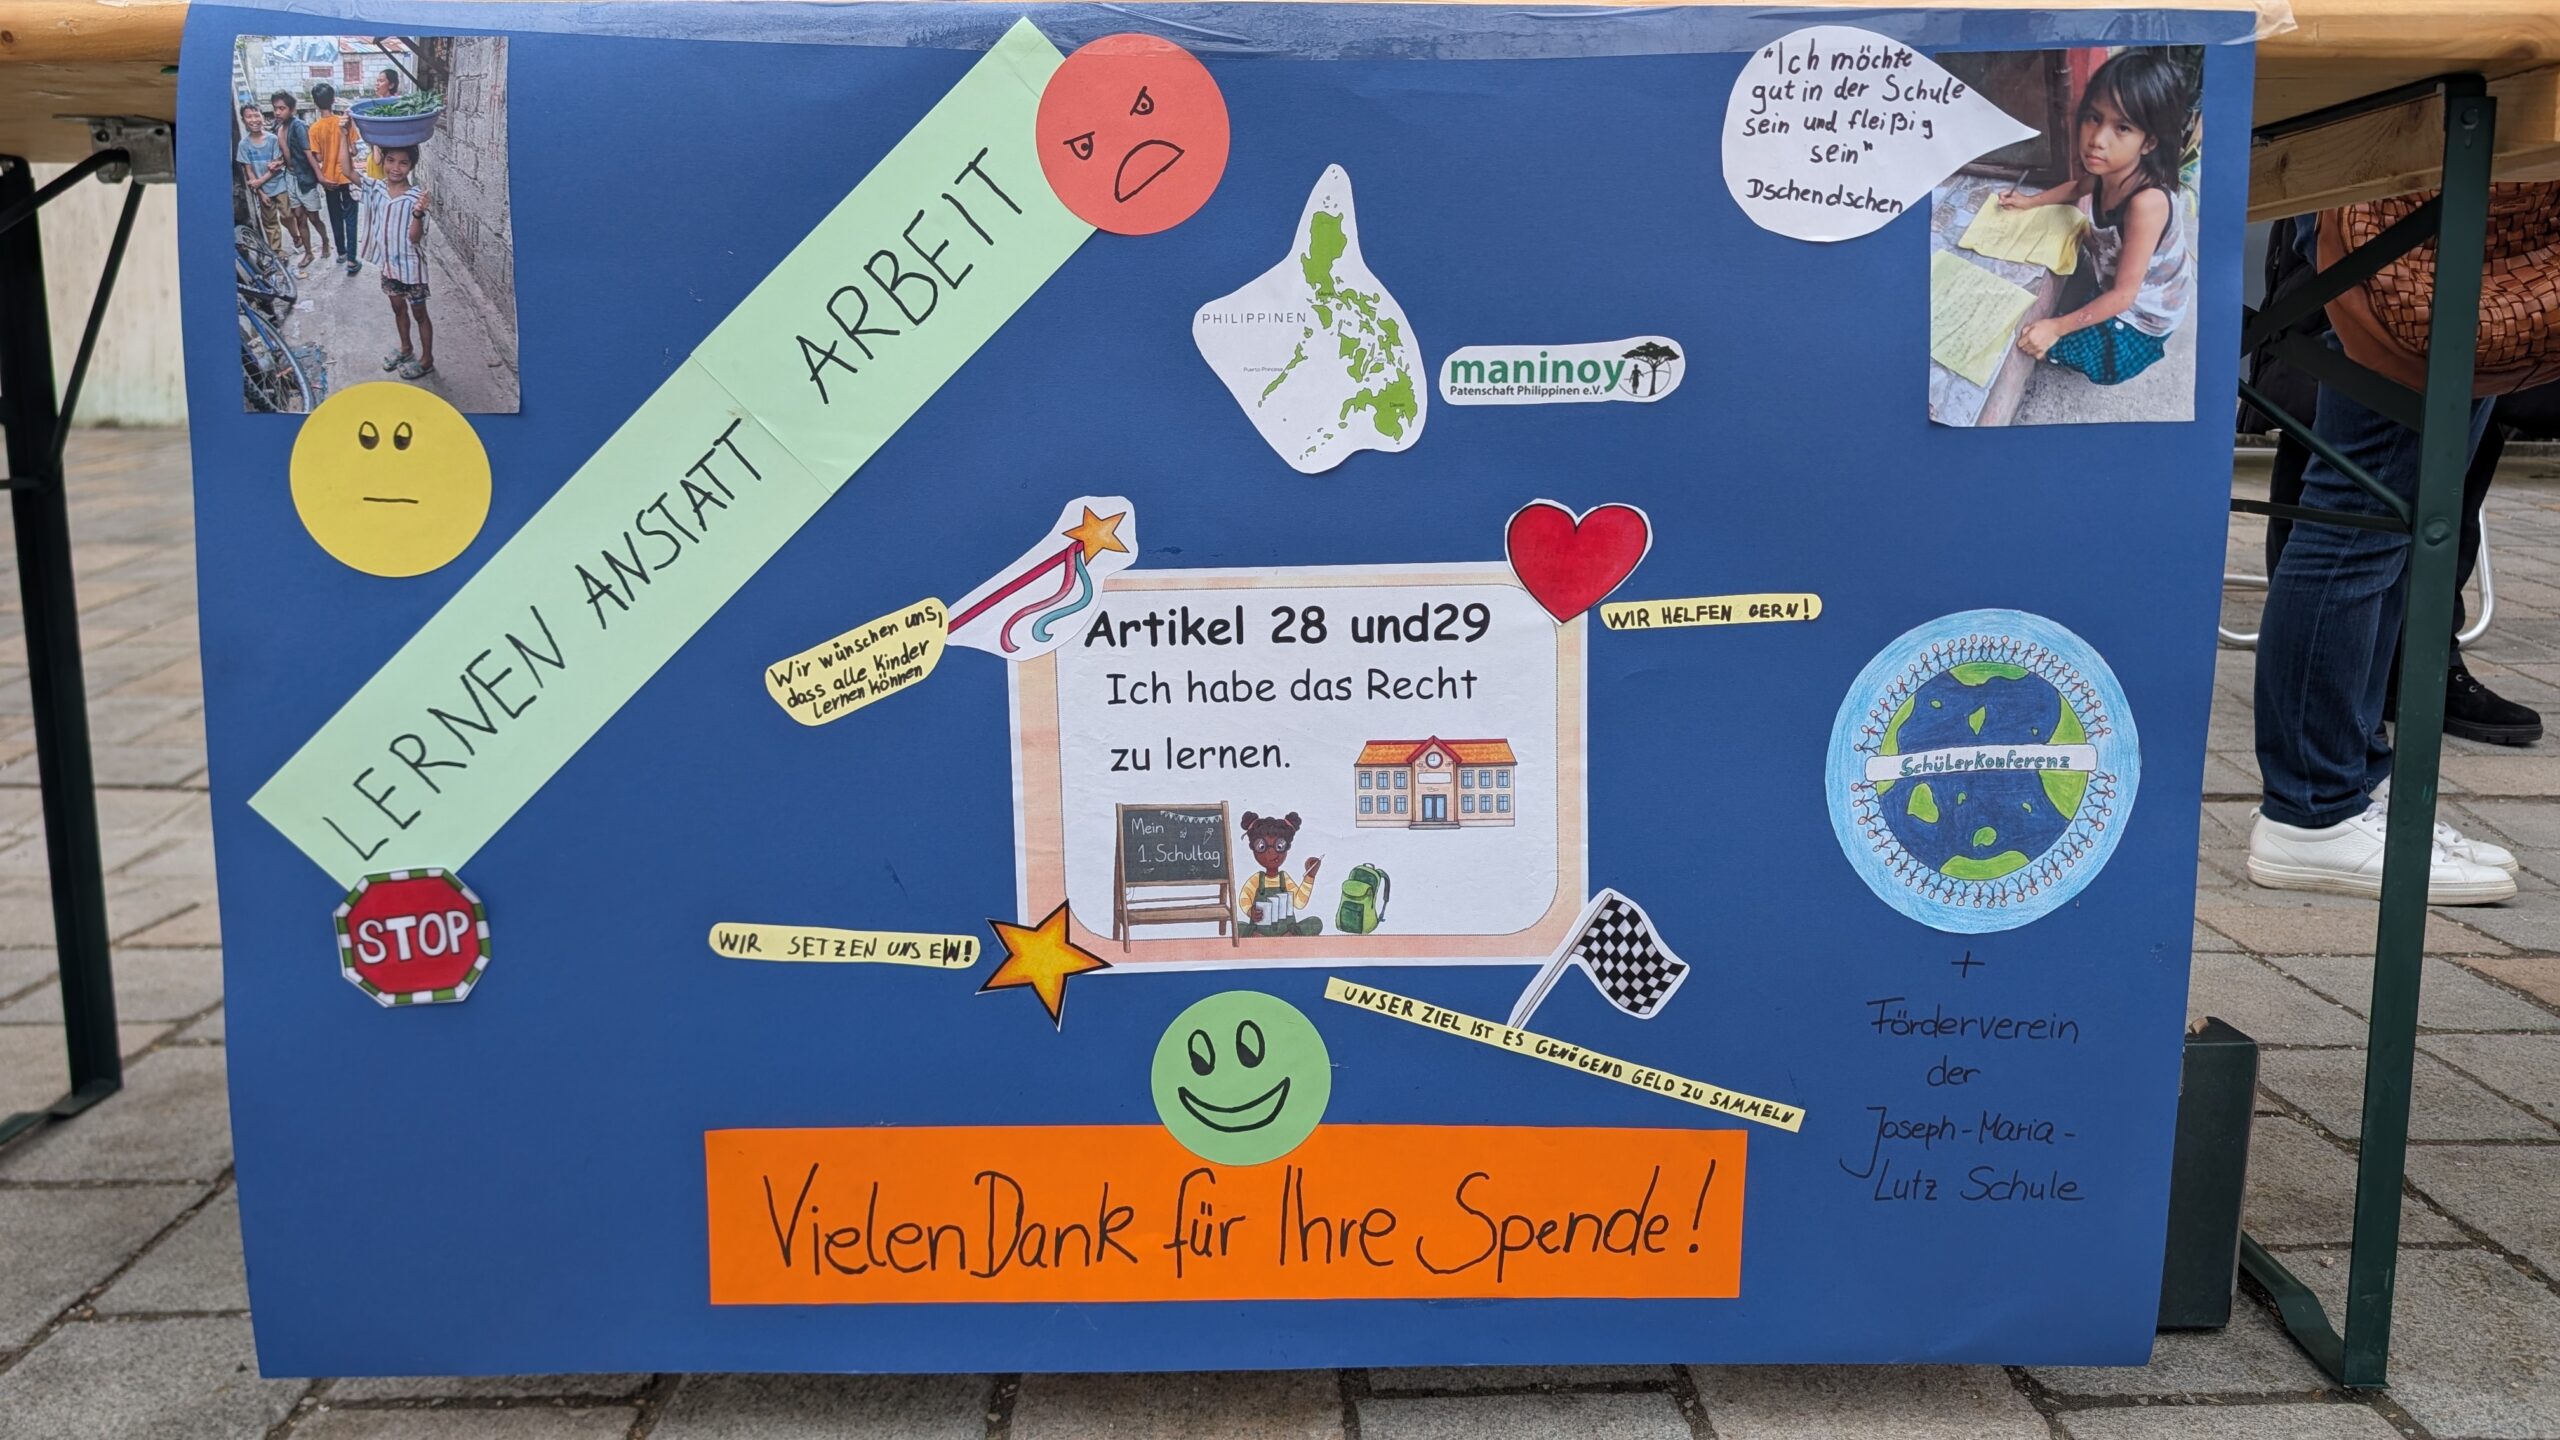 LERNEN ANSTATT ARBEIT
"Ich möchte
gut in der Schule
sein und fleißig
sein"
Dschendschen
PHILIPPINEN
maninoy
Patenschaft Philippinen e.V.
Wir wünschen uns,
dass alle Kinder
lernen können
Artikel 28 und29
Ich habe das Recht
zu lernen.
Mein
1. Schultag
WIR HELFEN GERN!
Schülerkonferenz
+
Förderverein
der
Joseph-Maria-
Lutz Schule
STOP
WIR SETZEN UNS EIN!
UNSER ZIEL IST ES GENÜGEND GELD ZU SAMMELN
Vielen Dank für Ihre Spende!